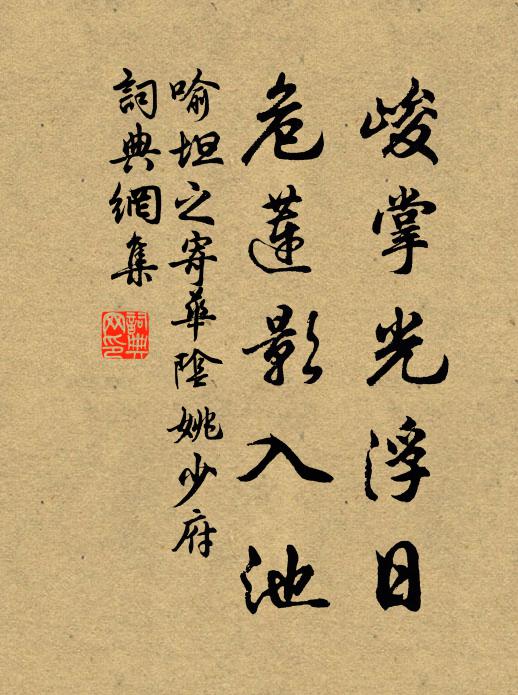 峻掌光浮日
危蓮影入池
喻坦之寄華陰姚少府
詞典網集
詞典網印